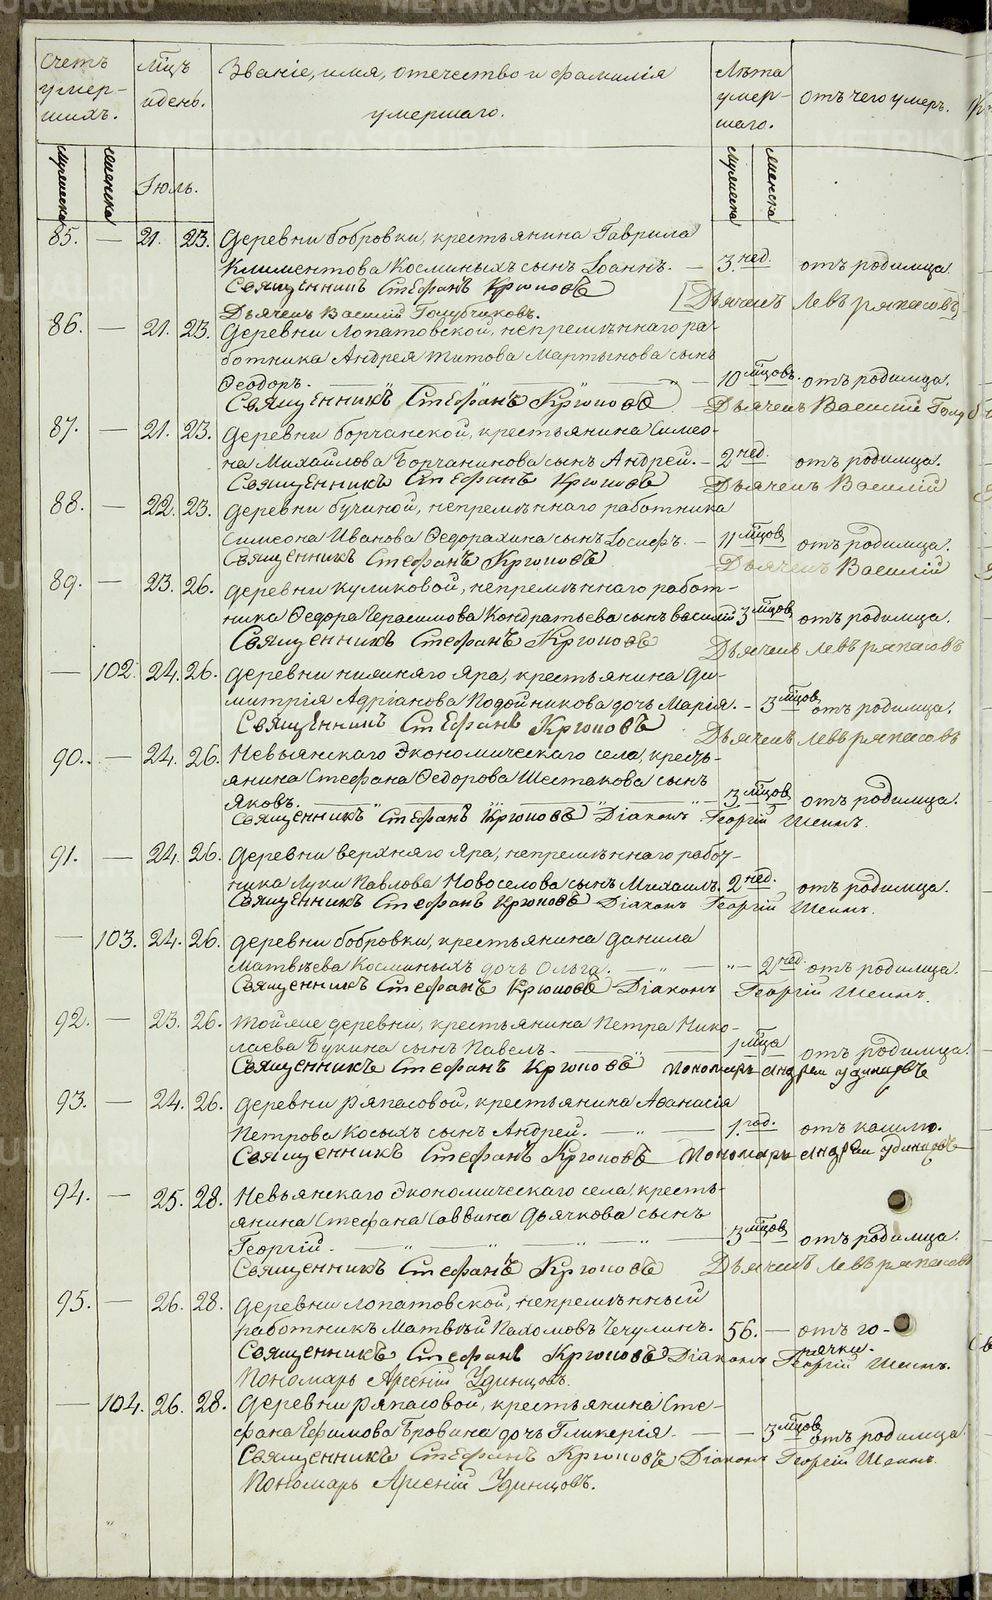 Счетъ умер-шихъ.
Мцъ и день.
Званіе, имя, отечество и фамилія умершаго.
Лѣта умер-шаго.
отъ чего умеръ.
мужеска
женска
Іюль.
мужеска
женска
85. — 21. 23. деревни бобровки, крестьянина Гаврила
Климентова Косминыхъ сынъ Іоаннъ. — 3 нед. отъ родимца.
Священникъ Стефанъ Крюковъ Дьячекъ Левъ ряпасовъ
Дьячекъ Василій Голубчиковъ.
86. — 21. 23. деревни Лопатовской, непремѣннаго ра-
ботника Андрея Титова Мартынова сынъ
Ѳеодоръ. — 10 мцовъ. отъ родимца.
Священникъ Стефанъ Крюковъ Дьячекъ Василій Голуб
87. — 21. 23. деревни борчанской, крестьянина Симео-
на Михайлова Борчанинова сынъ Андрей. — 2 нед. отъ родимца.
Священникъ Стефанъ Крюковъ Дьячекъ Василій
88. — 22. 23. деревни бучиной, непремѣннаго работника
Симеона Иванова Ѳедорахина сынъ Іосифъ. — 11 мцов отъ родимца.
Священникъ Стефанъ Крюковъ Дьячекъ Василій
89. — 23. 26. деревни куликовой, непремѣннаго работ-
ника Ѳедора Герасимова Кондратьева сынъ василій 3 мцов отъ родимца.
Священникъ Стефанъ Крюковъ Дьячекъ левъ ряпасовъ
— 102. 24. 26. деревни нижняго Яра, крестьянина Ди-
митрія Адріанова Подойникова дочь Марія. — 3 мцов отъ родимца.
Священникъ Стефанъ Крюковъ Дьячекъ левъ ряпасовъ
90. — 24. 26. Невьянскаго Экономическаго села, кресть-
янина Стефана Ѳедорова Шестакова сынъ
Яковъ. — 3 мцов отъ родимца.
Священникъ Стефанъ Крюковъ Діаконъ Георгій Шеинъ.
91. — 24. 26. деревни верхняго Яра, непремѣннаго рабоч-
ника Луки Павлова Новоселова сынъ Михаилъ. 2 нед. отъ родимца.
Священникъ Стефанъ Крюковъ Діаконъ Георгій Шеинъ.
— 103. 24. 26. деревни бобровки, крестьянина Данила
Матвѣева Косминыхъ дочь Ольга. — 2 нед. отъ родимца.
Священникъ Стефанъ Крюковъ Діаконъ Георгій Шеинъ.
92. — 23. 26. Тойже деревни, крестьянина Петра Нико-
лаева Букина сынъ Павелъ. — 1 мца отъ родимца.
Священникъ Стефанъ Крюковъ пономарь Андрей удинцовъ
93. — 24. 26. деревни ряпасовой, крестьянина Аѳанасія
Петрова Косыхъ сынъ Андрей. — 1 год. отъ кашлю.
Священникъ Стефанъ Крюковъ Пономарь Андрей удинцовъ
94. — 25. 28. Невьянскаго Экономическаго села, кресть-
янина Стефана Саввина Дьячкова сынъ
Георгій. — 3 мцов отъ родимца.
Священникъ Стефанъ Крюковъ Дьячекъ Левъ ряпасовъ
95. — 26. 28. деревни лопатовской, непремѣнный
работникъ Матвѣй Пахомовъ Чечулинъ. 56. — отъ го-
рячки.
Священникъ Стефанъ Крюковъ Діаконъ Георгій Шеинъ.
Пономарь Арсеній Удинцовъ.
— 104. 26. 28. деревни ряпасовой, крестьянина Сте-
фана Ефимова Бровина дочь Гликерія. — 3 мцов отъ родимца.
Священникъ Стефанъ Крюковъ Діаконъ Георгій Шеинъ.
Пономарь Арсеній Удинцовъ.
METRIKI.GASO-URAL.RU